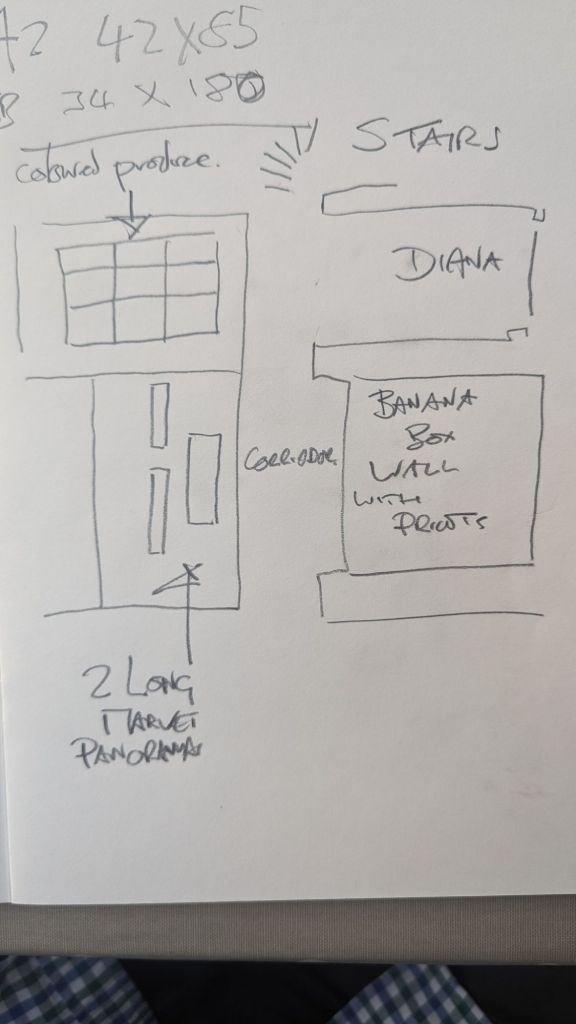 A2 42 X 85
B 34 X 180
STAIRS
coloured produce.
DIANA
CORRIDOR.
BANANA
BOX
WALL
WITH
PRINTS
2 LONG
MARKET
PANORAMAS